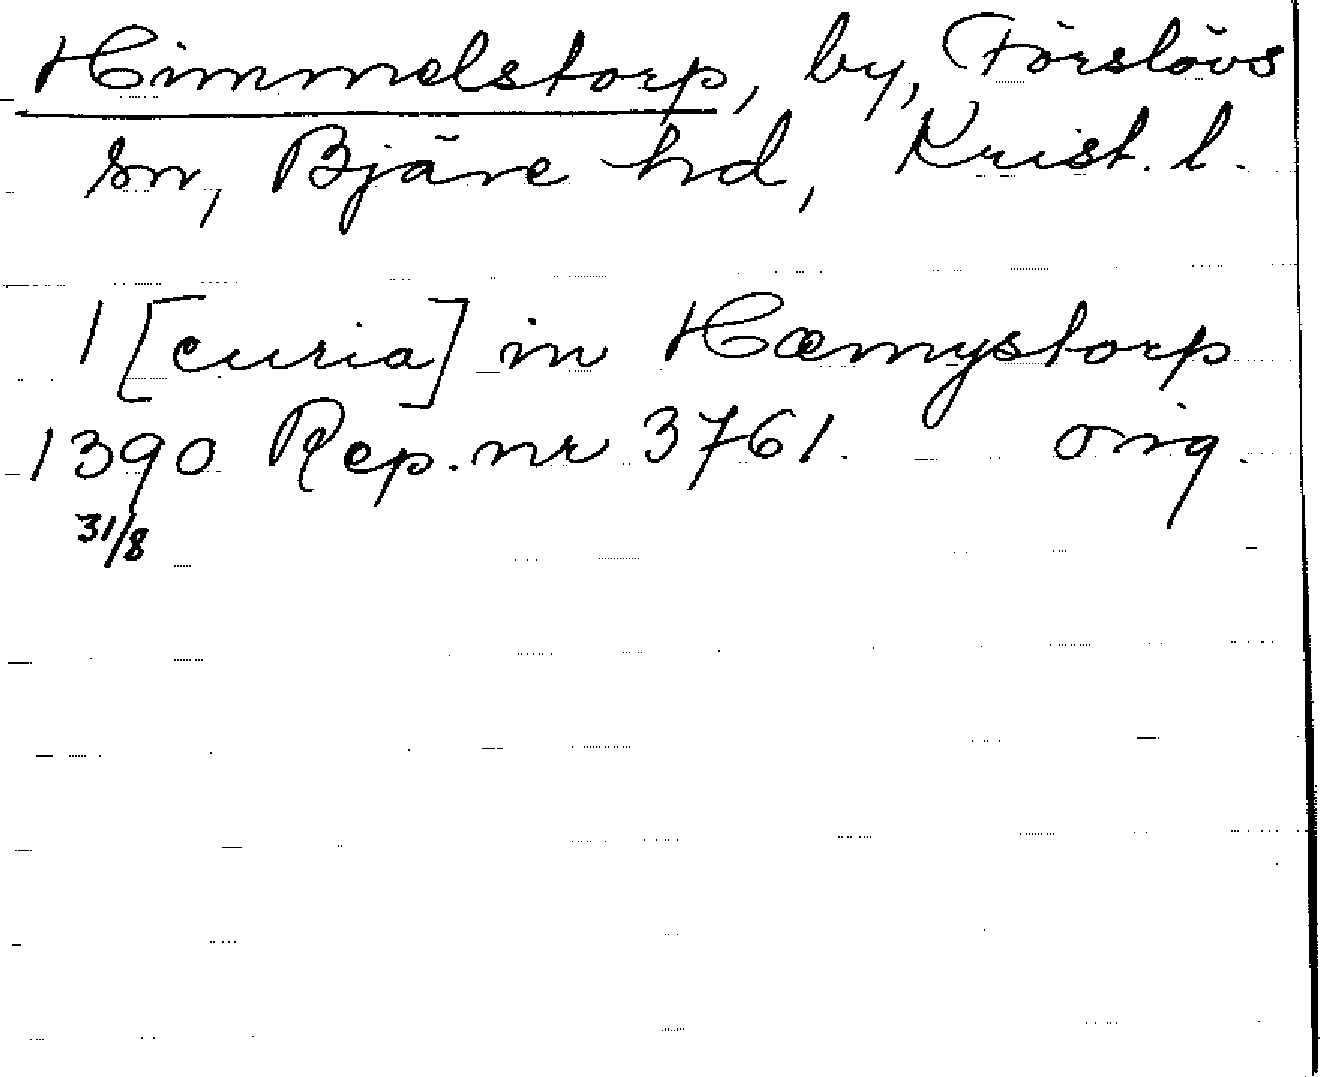 Himmelstorp, by, Förslövs
sn, Bjäre hd, Krist. l.
1 [curia] in Hæmystorp
1390 Rep. nr 3761. orig.
31/8